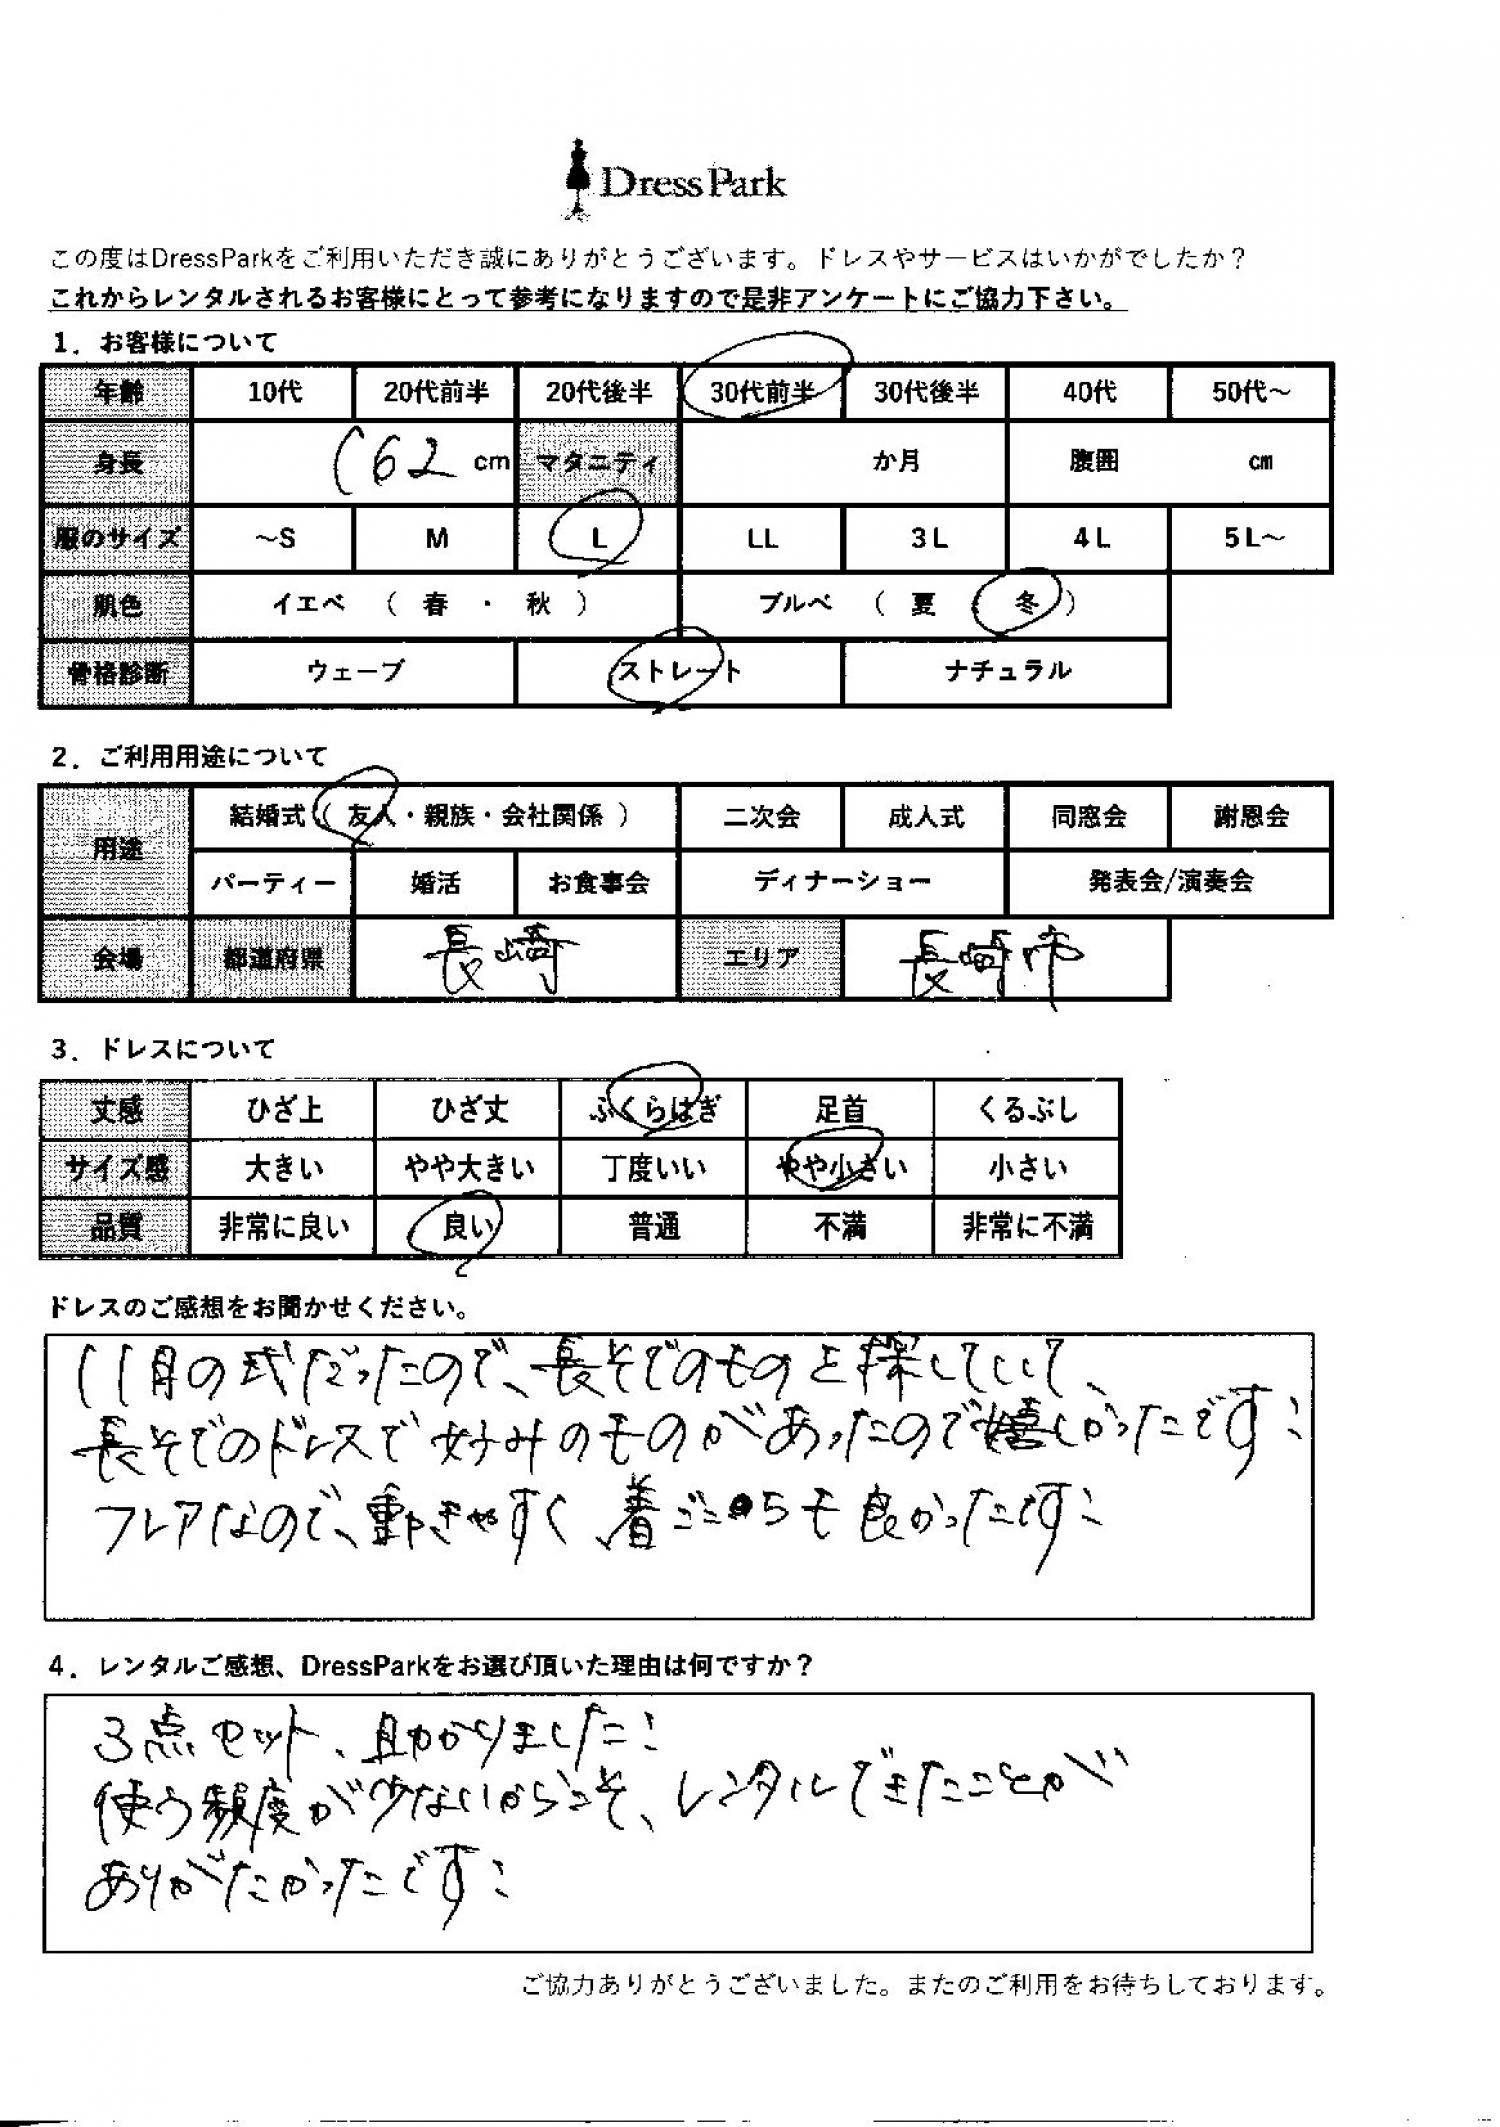 DressPark
この度はDressParkをご利用いただき誠にありがとうございます。ドレスやサービスはいかがでしたか？
これからレンタルされるお客様にとって参考になりますので是非アンケートにご協力下さい。
1．お客様について
年齢 10代 20代前半 20代後半 30代前半 30代後半 40代 50代～
身長 162 cm マタニティ か月 腹囲 cm
服のサイズ ～S M L LL 3L 4L 5L～
肌色 イエベ （ 春 ・ 秋 ） ブルベ （ 夏 冬 ）
骨格診断 ウェーブ ストレート ナチュラル
2．ご利用用途について
用途 結婚式（ 友人・親族・会社関係 ） 二次会 成人式 同窓会 謝恩会
パーティー 婚活 お食事会 ディナーショー 発表会/演奏会
会場 都道府県 長崎 エリア 長崎市
3．ドレスについて
丈感 ひざ上 ひざ丈 ふくらはぎ 足首 くるぶし
サイズ感 大きい やや大きい 丁度いい やや小さい 小さい
品質 非常に良い 良い 普通 不満 非常に不満
ドレスのご感想をお聞かせください。
11月の式だったので、長そでのものを探していて、
長そでのドレスで好みのものがあったので嬉しかったです！
フレアなので、動きやすく、着ごこちも良かったです！
4．レンタルご感想、DressParkをお選び頂いた理由は何ですか？
3点セット、助かりました！
使う頻度が少ないからこそ、レンタルできたことが
ありがたかったです！
ご協力ありがとうございました。またのご利用をお待ちしております。